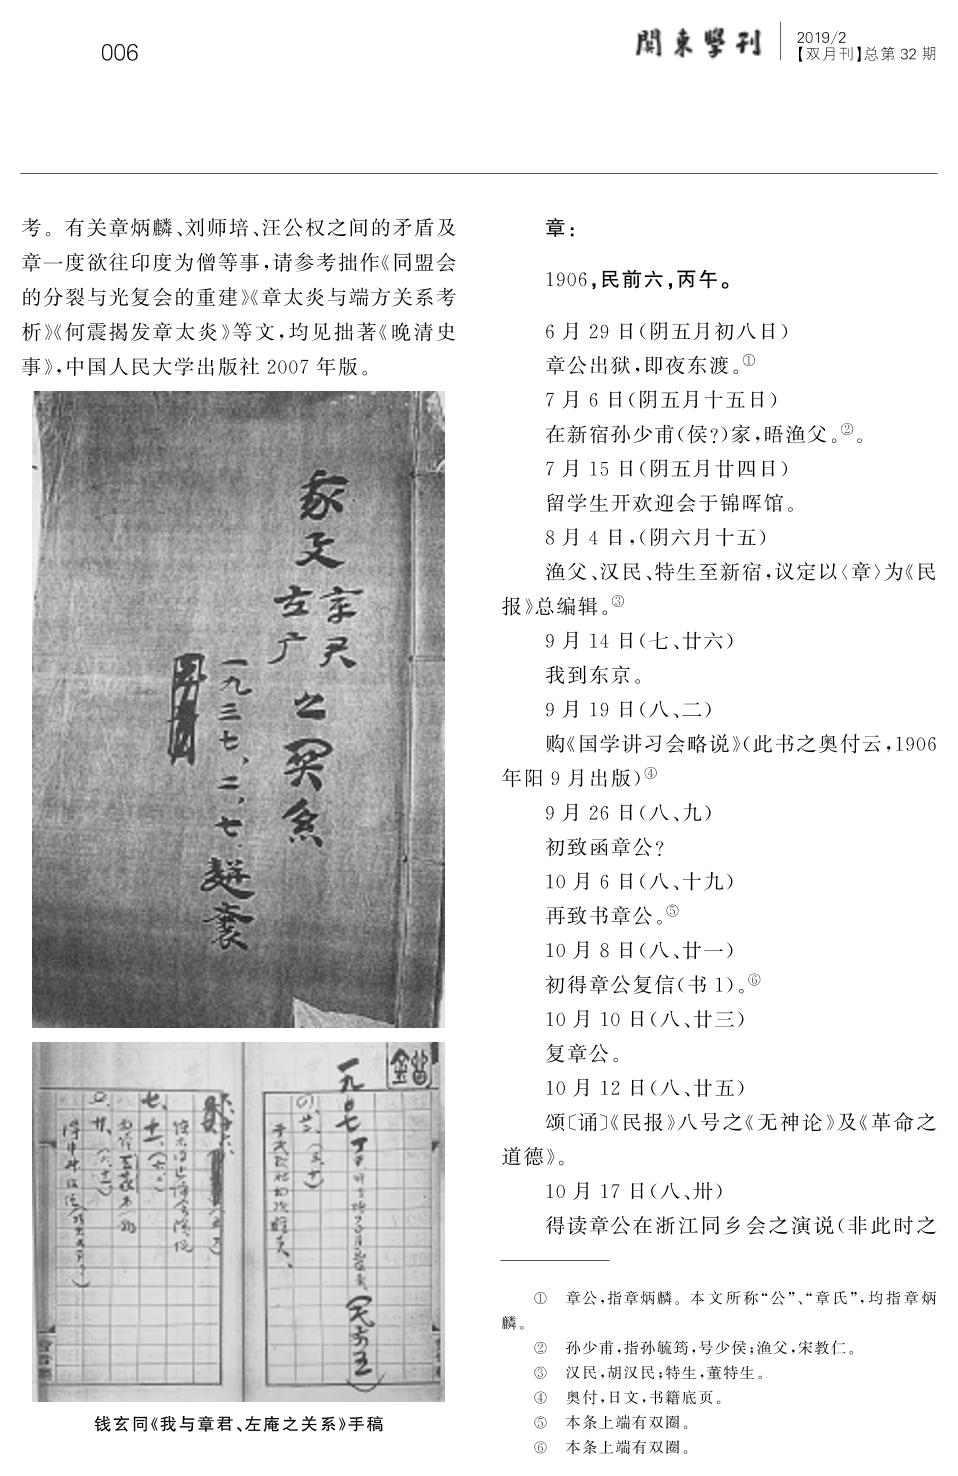 006
關東學刊
2019/2
【双月刊】总第 32 期
考。有关章炳麟、刘师培、汪公权之间的矛盾及
章一度欲往印度为僧等事,请参考拙作《同盟会
的分裂与光复会的重建》《章太炎与端方关系考
析》《何震揭发章太炎》等文,均见拙著《晚清史
事》,中国人民大学出版社 2007 年版。
之关系
一九三七、二、七.
一九〇七
钱玄同《我与章君、左庵之关系》手稿
章:
1906,民前六,丙午。
6 月 29 日(阴五月初八日)
章公出狱,即夜东渡。①
7 月 6 日(阴五月十五日)
在新宿孙少甫(侯?)家,晤渔父。②。
7 月 15 日(阴五月廿四日)
留学生开欢迎会于锦晖馆。
8 月 4 日,(阴六月十五)
渔父、汉民、特生至新宿,议定以〈章〉为《民
报》总编辑。③
9 月 14 日(七、廿六)
我到东京。
9 月 19 日(八、二)
购《国学讲习会略说》(此书之奥付云,1906
年阳 9 月出版)④
9 月 26 日(八、九)
初致函章公?
10 月 6 日(八、十九)
再致书章公。⑤
10 月 8 日(八、廿一)
初得章公复信(书 1)。⑥
10 月 10 日(八、廿三)
复章公。
10 月 12 日(八、廿五)
颂〔诵〕《民报》八号之《无神论》及《革命之
道德》。
10 月 17 日(八、卅)
得读章公在浙江同乡会之演说(非此时之
① 章公,指章炳麟。本文所称“公”、“章氏”,均指章炳
麟。
② 孙少甫,指孙毓筠,号少侯;渔父,宋教仁。
③ 汉民,胡汉民;特生,董特生。
④ 奥付,日文,书籍底页。
⑤ 本条上端有双圈。
⑥ 本条上端有双圈。